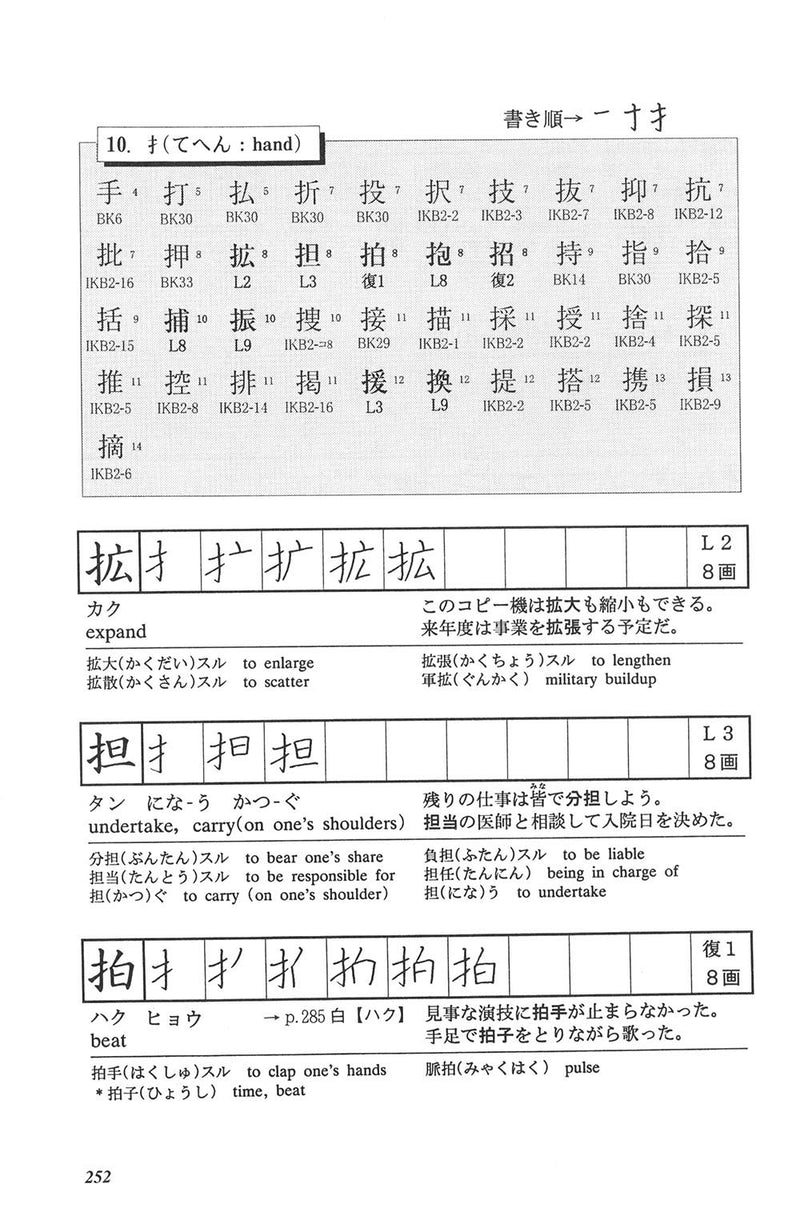 書き順→ 一 十 扌
10. 扌(てへん：hand)
手 4 打 5 払 5 折 7 投 7 択 7 技 7 抜 7 抑 7 抗 7
BK6 BK30 BK30 BK30 BK30 IKB2-2 IKB2-3 IKB2-7 IKB2-8 IKB2-12
批 7 押 8 拡 8 担 8 拍 8 抱 8 招 8 持 9 指 9 拾 9
IKB2-16 BK33 L2 L3 復1 L8 復2 BK14 BK30 IKB2-5
括 9 捕 10 振 10 捜 10 接 11 描 11 採 11 授 11 捨 11 探 11
IKB2-15 L8 L9 IKB2-コ8 BK29 IKB2-1 IKB2-2 IKB2-2 IKB2-4 IKB2-5
推 11 控 11 排 11 掲 11 援 12 換 12 提 12 搭 12 携 13 損 13
IKB2-5 IKB2-8 IKB2-14 IKB2-16 L3 L9 IKB2-2 IKB2-5 IKB2-5 IKB2-9
摘 14
IKB2-6
拡 扌 扩 拡 拡 L2
8画
カク このコピー機は拡大も縮小もできる。
expand 来年度は事業を拡張する予定だ。
拡大(かくだい)スル to enlarge 拡張(かくちょう)スル to lengthen
拡散(かくさん)スル to scatter 軍拡(ぐんかく) military buildup
担 扌 担 担 L3
8画
みな
タン にな-う かつ-ぐ 残りの仕事は皆で分担しよう。
undertake, carry(on one's shoulders) 担当の医師と相談して入院日を決めた。
分担(ぶんたん)スル to bear one's share 負担(ふたん)スル to be liable
担当(たんとう)スル to be responsible for 担任(たんにん) being in charge of
担(かつ)ぐ to carry (on one's shoulder) 担(にな)う to undertake
拍 扌 拍 拍 復1
8画
ハク ヒョウ → p.285 白【ハク】 見事な演技に拍手が止まらなかった。
beat 手足で拍子をとりながら歌った。
拍手(はくしゅ)スル to clap one's hands 脈拍(みゃくはく) pulse
*拍子(ひょうし) time, beat
252